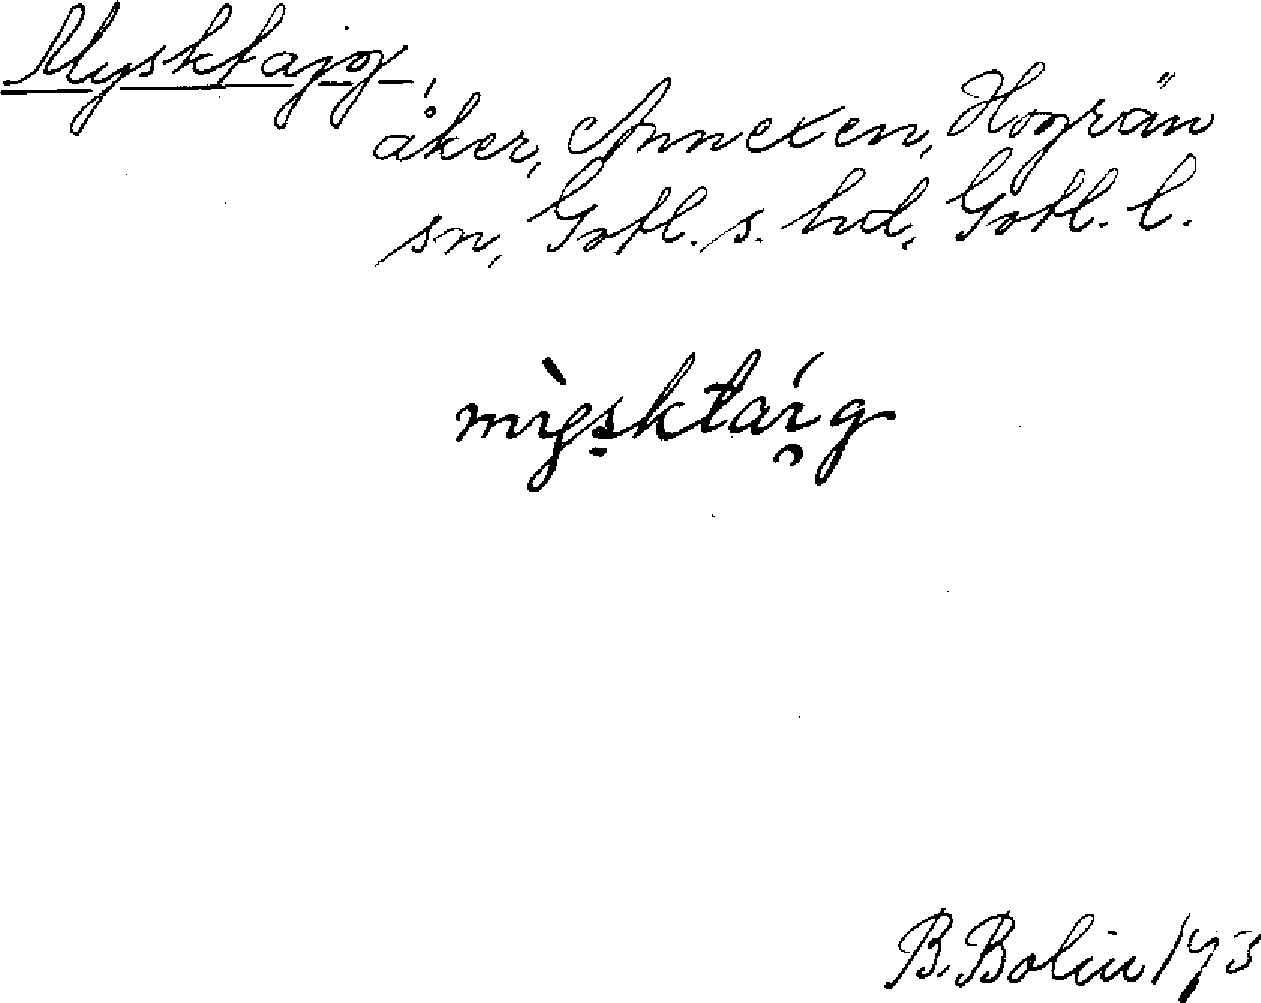 Mysktajg,
åker, Annexen, Hogrän
sn, Gotl. s. hd, Gotl. l.
mỳsktaíg
B. Bolin